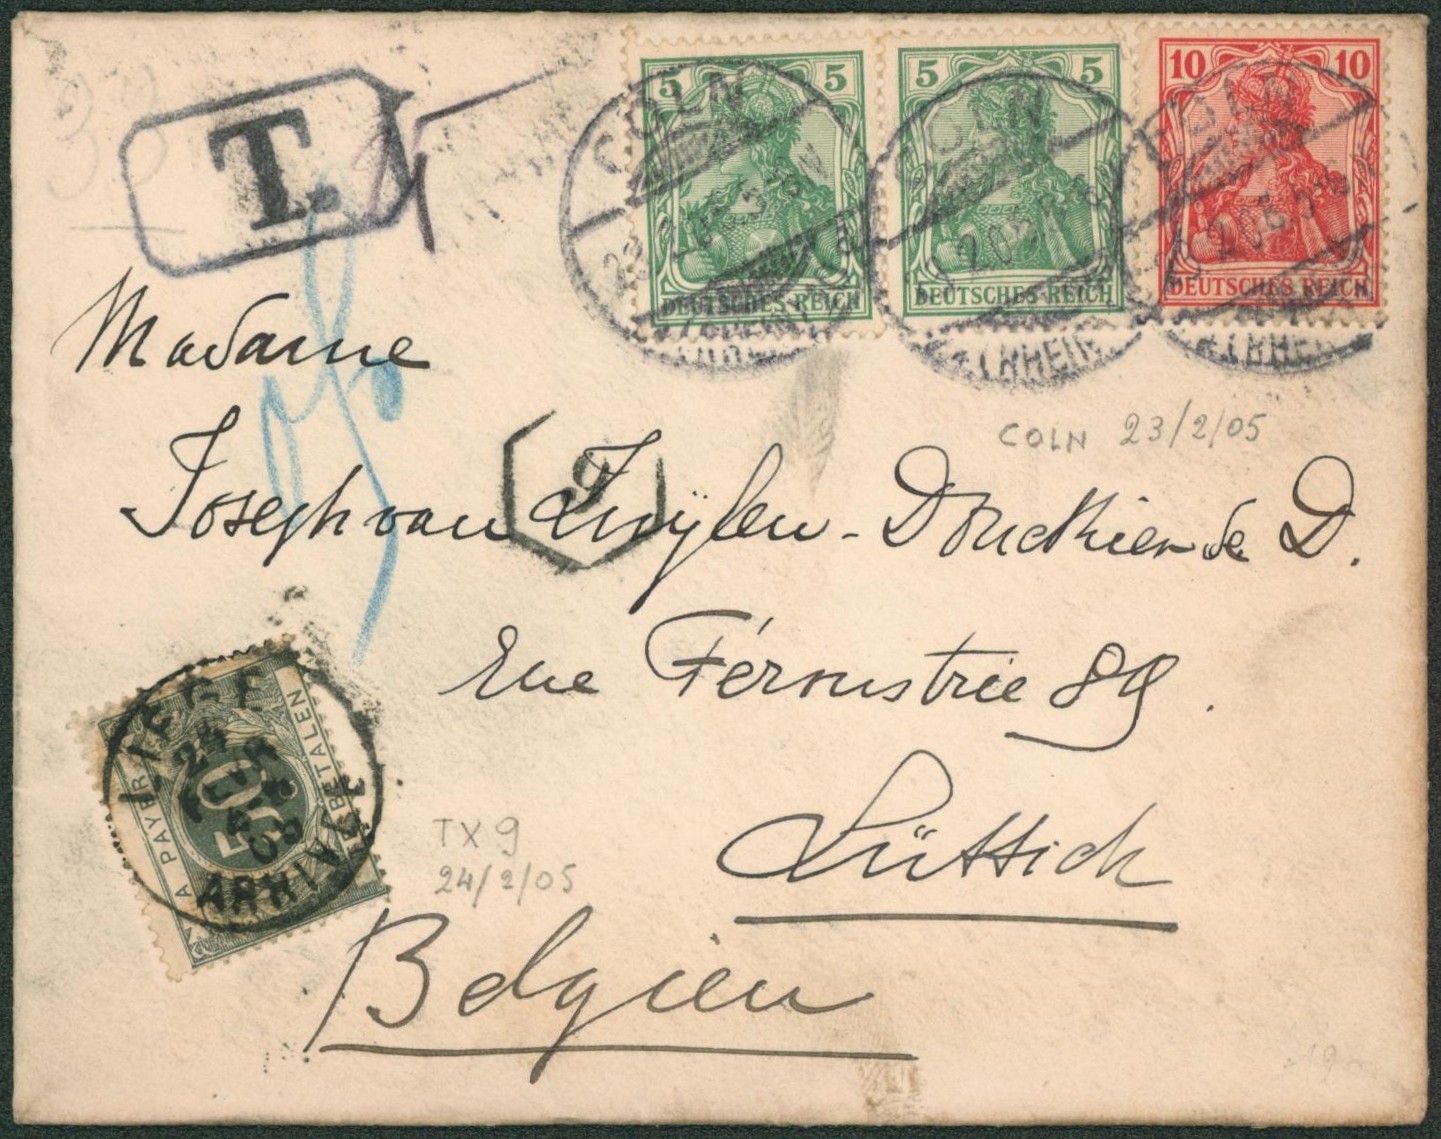 T.
5 5
DEUTSCHES REICH
5 5
DEUTSCHES REICH
10 10
DEUTSCHES REICH
COLN
COLN
COLN
Madame
COLN 23/2/05
9
Joseph van Zuÿlen-Donckier de D.
Rue Féronstrée 89.
Lüttich
Belgien
TX 9
24/2/05
A PAYER
50
TE BETALEN
LIEGE
ARRIVÉE